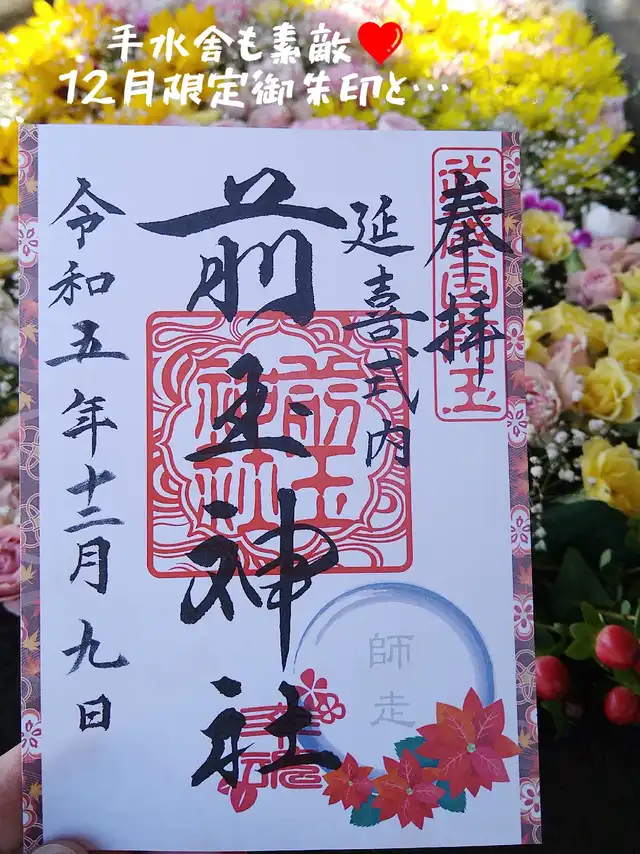 手水舎も素敵❤
12月限定御朱印と…
奉拝
武蔵国埼玉
延喜式内
前玉神社
前玉神社
令和五年十二月九日
師走